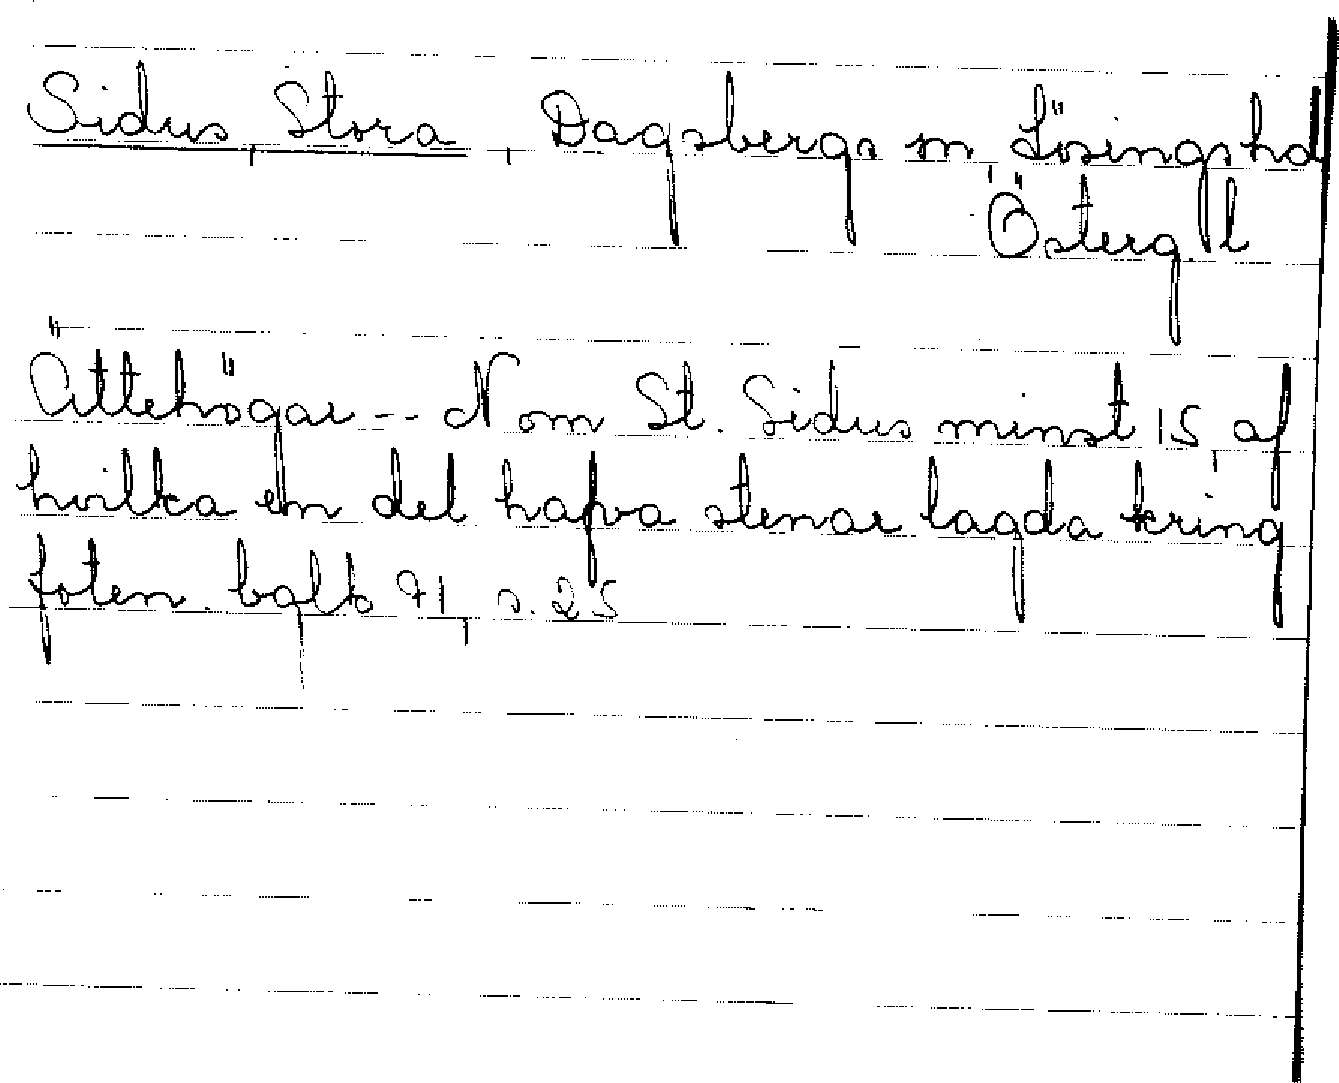 Sidus, Stora, Dagsbergs sn, Lösingshd
Österg. l
Ättehögar -- N om St. Sidus minst 15, af
hvilka en del hafva stenar lagda kring
foten. bglb 91, s. 25